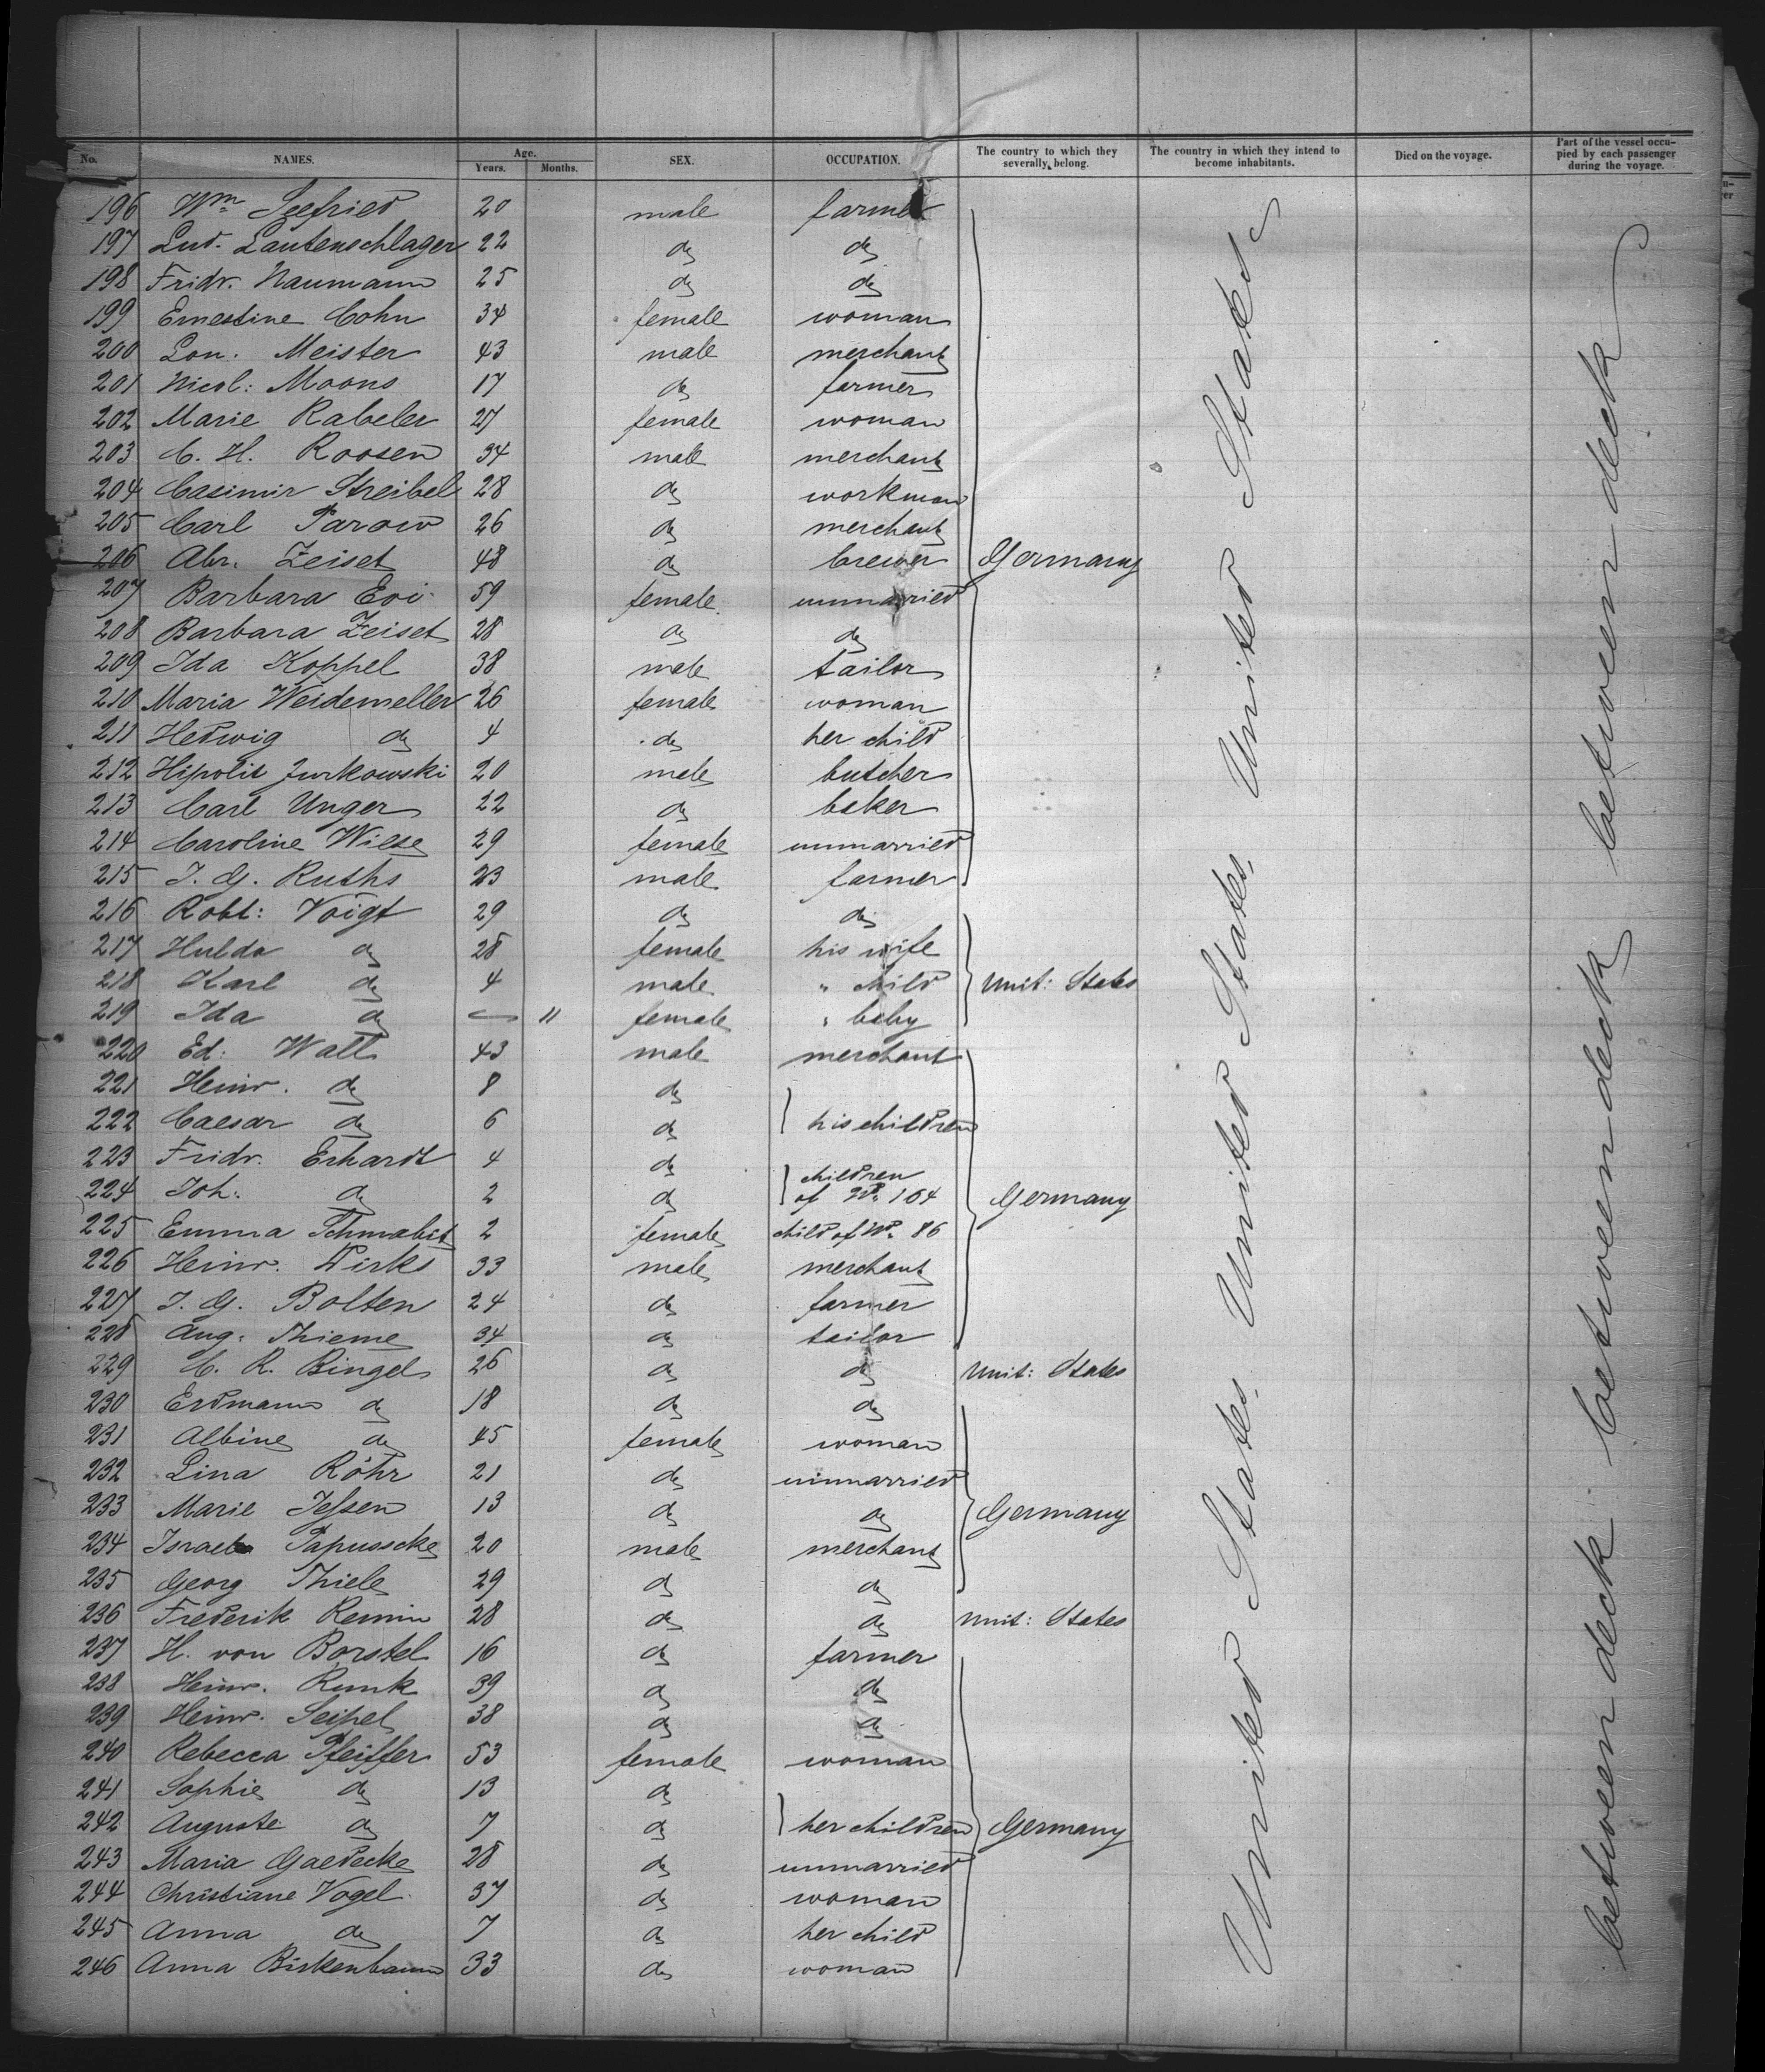 No. NAMES. Age. Years. Months. SEX. OCCUPATION. The country to which they severally belong. The country in which they intend to become inhabitants. Died on the voyage. Part of the vessel occupied by each passenger during the voyage.
196 Wm Seefried 20 male farmer
197 Lud. Lautenschlager 22 do do
198 Fridr. Naumann 25 do do
199 Ernestine Cohn 34 female woman
200 Lon. Meister 43 male merchant
201 Nicol: Moons 17 do farmer
202 Marie Rabeler 27 female woman
203 C. H. Roosen 34 male merchant
204 Casimir Streibel 28 do workman
205 Carl Parow 26 do merchant
206 Abr. Zeiset 48 do brewer Germany
207 Barbara Eoi 59 female unmarried
208 Barbara Zeiset 28 do do
209 Ida Koppel 38 male tailor
210 Maria Weidemeller 26 female woman
211 Hedwig do 4 do her child
212 Hipolit Jurkowski 20 male butcher
213 Carl Unger 22 do baker
214 Caroline Wiese 29 female unmarried
215 J. G. Ruths 23 male farmer
216 Robt: Voigt 29 do do
217 Hulda do 28 female his wife
218 Karl do 4 male " child Unit: States
219 Ida do 11 female " baby
220 Ed: Walt 43 male merchant
221 Heinr. do 8 do
222 Caesar do 6 do his children
223 Fridr. Erhardt 4 do children
224 Joh: do 2 do of No. 164 Germany
225 Emma Schmabit 2 female child of No. 86
226 Heinr. Dirks 33 male merchant
227 J. G. Bolten 24 do farmer
228 Aug. Thieme 34 do tailor
229 C. R. Bingel 26 do do Unit: States
230 Erdmann do 18 do do
231 Albine do 45 female woman
232 Lina Röhr 21 do unmarried
233 Marie Jessen 13 do do Germany
234 Israel Papusscke 20 male merchant
235 Georg Thiele 29 do do
236 Frederik Remin 28 do do Unit: States
237 H. von Borstel 16 do farmer
238 Heinr. Runk 39 do do
239 Heinr. Seipel 38 do do
240 Rebecca Pfeiffer 53 female woman
241 Sophie do 13 do
242 Auguste do 7 do her children Germany
243 Maria Gaedecke 28 do unmarried
244 Christiane Vogel 37 do woman
245 Anna do 7 do her child
246 Anna Birkenbaum 33 do woman
United States United States United States
between deck between deck between deck